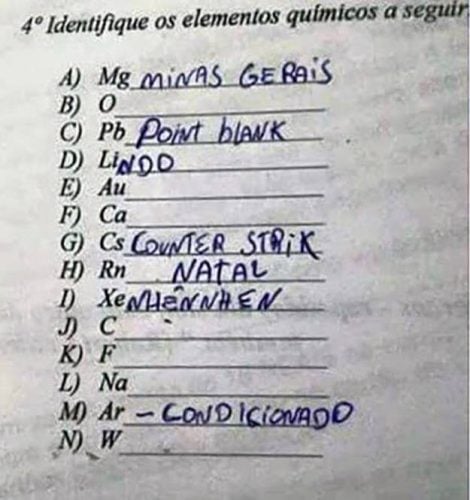 4º Identifique os elementos químicos a seguir
A) Mg MINAS GERAIS
B) O
C) Pb POINT bLANK
D) LiNDO
E) Au
F) Ca
G) Cs COUNTER STRiK
H) Rn NATAL
I) XeNHÊNNHEN
J) C
K) F
L) Na
M) Ar - CONDICIONADO
N) W